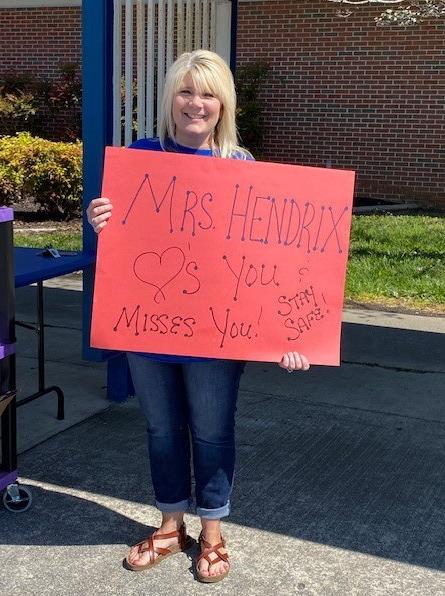 MRS. HENDRIX
♡'S YOU &
MISSES YOU! STAY
SAFE!